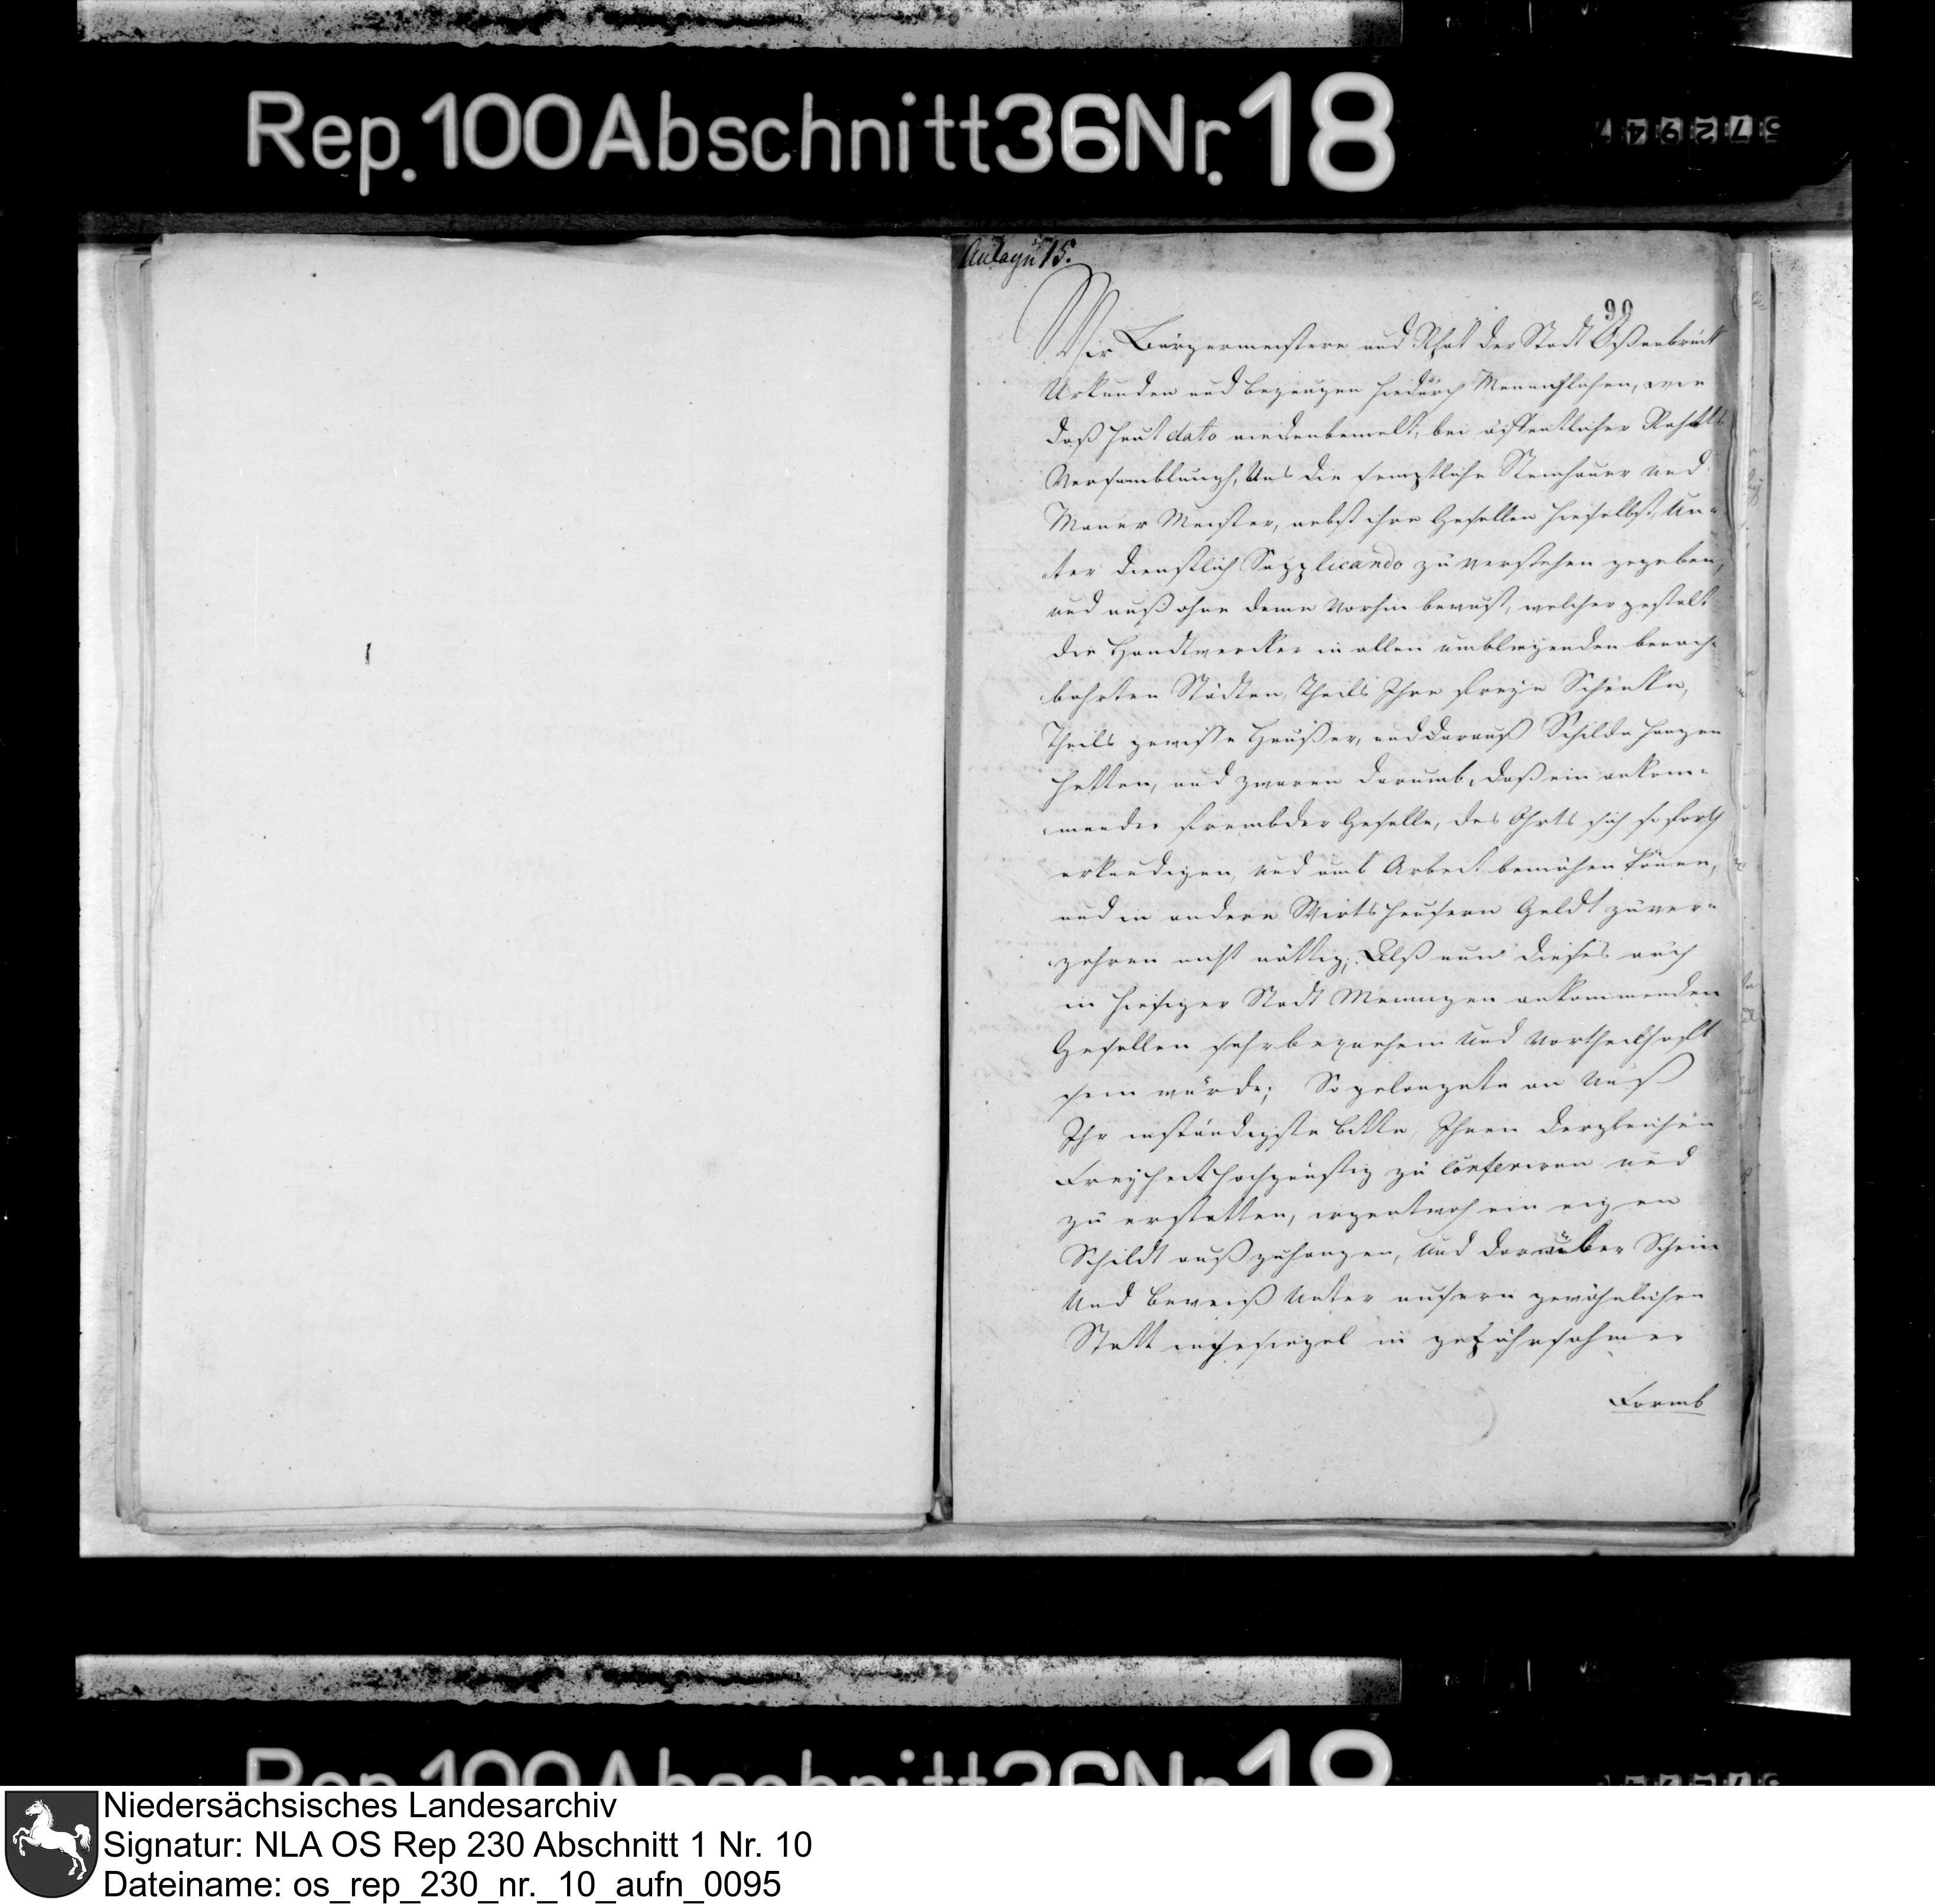 Rep. 100 Abschnitt 36 Nr. 18
Anlage 15.
90
Wir Bürgermeistere und Rhat der Stadt Oßenbrück
Urkunden und bezeugen hiedurch Menniglichen, wie
daß heut dato niedenbemelt, bei öffentlicher Rahts
Versamblungh, Uns die semptliche Steinhauer und
Maner Meister, nebst ihre Gesellen hieselbst, Un-
ter dienstlich Supplicando zu verstehen gegeben,
und unß ohne deme vorhin bewust, welcher gestalt
die Handtwercker in allen umbliegenden benach-
bahrten Städten, Theils Ihre freye Schencke,
Theils gewisse Heußer, und darauß Schilde hangen
hetten, und zwaren darumb, daß ein ankom-
mender frembder Geselle, des Ohrts sich so forth
erkundigen, und umb Arbeit bemühen könne,
und in andern Wirtsheusern Geldt zuver-
zehren nicht nöttig; Alß nun dieses auch
in hiesiger Stadt Mennigen ankommenden
Gesellen sehr bequehem und vortheilhaft
sein würde; So gelangete an Unß
Ihr inständigste bitte, Ihnen dergleichen
Freyheit hochgünstig zu conferiren und
zu erstatten, irgentwoh ein eigen
Schildt außzuhangen, und darüber Schein
Und beweiß Unter unsern gewöhnlichen
Statt ingesiegel in gebührsahmer
Formb
Niedersächsisches Landesarchiv
Signatur: NLA OS Rep 230 Abschnitt 1 Nr. 10
Dateiname: os_rep_230_nr._10_aufn_0095